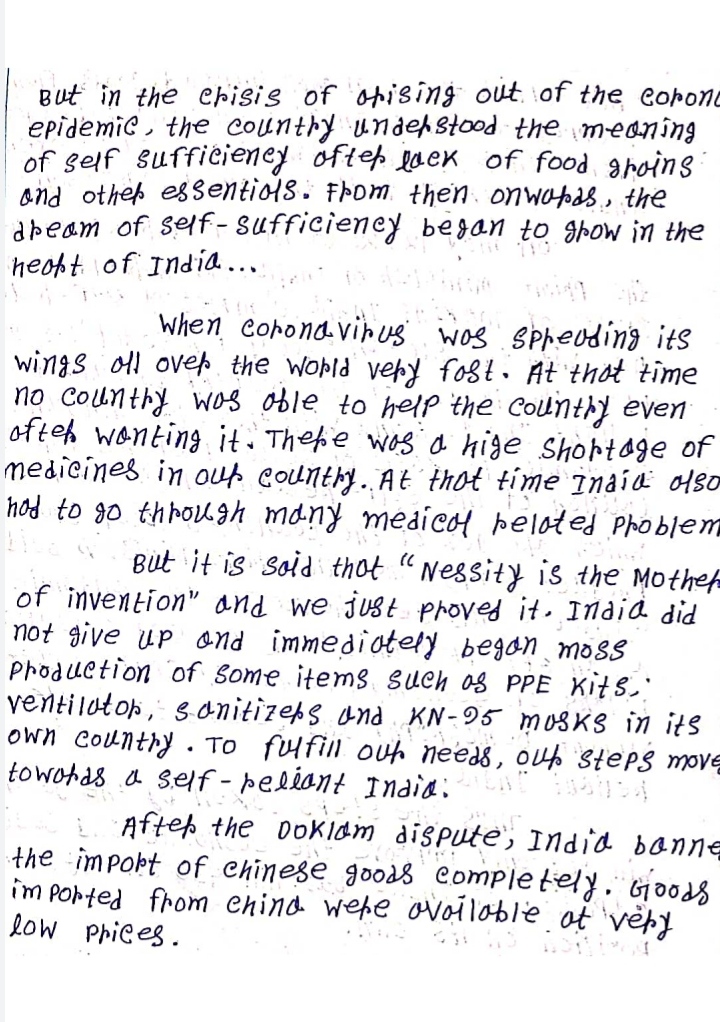 But in the crisis of arising out of the corona
epidemic, the country understood the meaning
of self sufficiency after lack of food grains
and other essentials. From then onwards, the
dream of self-sufficiency began to grow in the
heart of India...
When coronavirus was spreading its
wings all over the world very fast. At that time
no country was able to help the country even
after wanting it. There was a hige shortage of
medicines in our country. At that time India also
had to go through many medical related Problem
But it is said that "Nessity is the Mother
of invention" and we just proved it. India did
not give up and immediately began mass
Production of some items such as PPE kits,
ventilator, sanitizers and KN-95 masks in its
own country. To fulfill our needs, our steps move
towards a self-reliant India.
After the Doklam dispute, India banne
the import of chinese goods completely. Goods
imported from china were available at very
low prices.